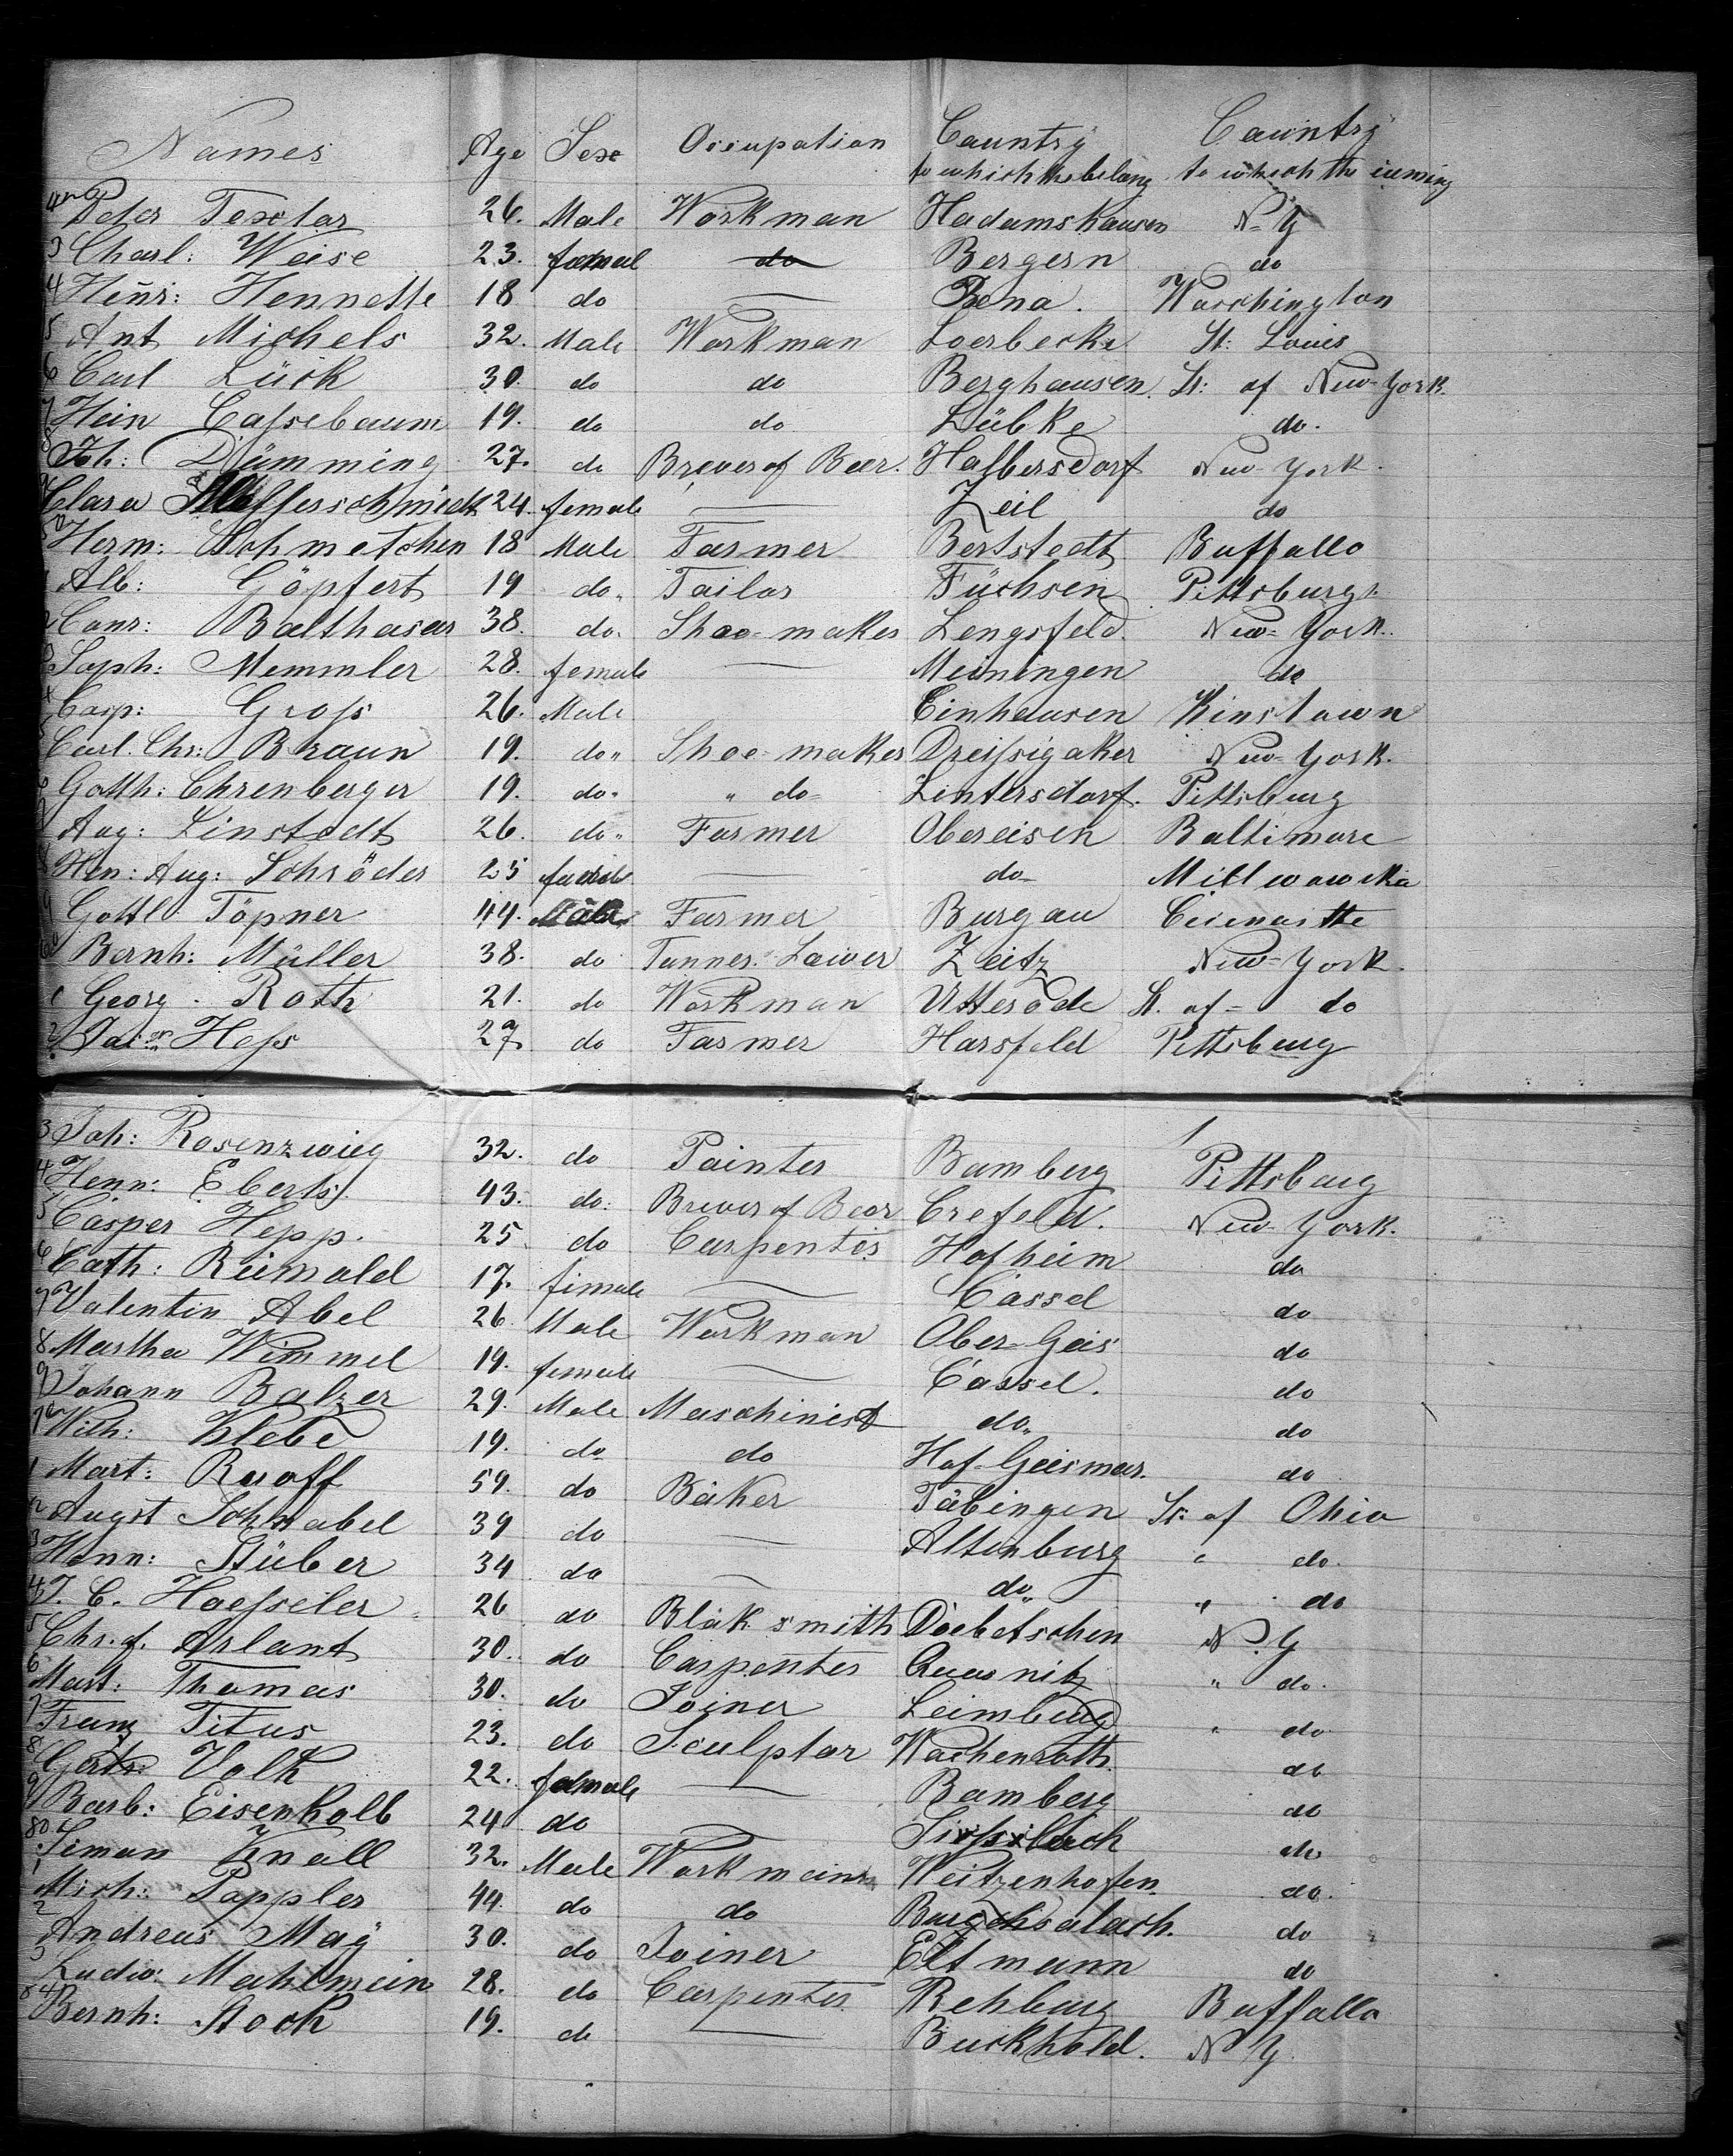 Names Age Sex Occupation Cauntry to which the belang Cauntry to which the cuming
42 Peter Textor 26. Male Workman Hadamshausen N=Y
3 Charl: Weise 23. femal do Bergern do
4 Henr: Hennette 18 do — Jena. Waschington
5 Ant Michels 32. Male Workman Loerbecke St: Louis
6 Carl Lück 30. do do Berghausen. St: of New-York.
7 Hein Caſsebaum 19. do do Lübke do.
8 Joh: Dümming 27. do Brewer of Beer. Halbersdorf New-York.
9 Clara Meſserschmidt 24. female — Zeil do
50 Herm: Schmetchen 18 Male Farmer Bertstedt Buffallo
1 Alb: Göpfert 19 do. Tailor Füchsen Pittsburgh
2 Conr: Balthasar 38. do. Shoe-maker Lengsfeld. New=York.
3 Soph: Memmler 28. female — Meiningen do
4 Casp: Groſs 26. Male Einhausen Kinstown
5 Carl. Chr: Braun 19. do" Shoe-maker Dreiſsigaker New-York.
6 Gotth: Ehrenberger 19. do. " do- Lintersdorf. Pittsburg
7 Aug: Linstedt 26. do.. Farmer Obereisen Baltimore
8 Hen: Aug: Schröder 25 female — do- Millwawka
9 Gottl: Töpner 44. Male Farmer Burgau
60 Bernh: Müller 38. do Tanner-Lawer Zeitz New=York.
1 Georg. Roth 21. do Workman Utterode St. of= do
2 Heſs 27. do Farmer Harsfeld Pittsburg
3 Joh: Rosenzwieg 32. do Painter Bamberg Pittsburg
4 Henr: Eberts. 43. do: Brewer of Beer Crefeld. New-York.
5 Casper Hepp. 25 do Carpenter Hofheim do
6 Cath: Reimold 17. fimale — Cassel do
7 Valentin Abel 26. Male Workman Ober-Geis do
8 Martha Wimmel 19. female — Cassel. do
9 Johann Balzer 29. Male Maschinist do" do
70 Wilh: Klebe 19. do do Hof-Geismar. do
1 Mart: Ruoff 59. do Baker Täbingen St: of Ohio
2 Augst Schnabel 39 do — Altenburg " do.
3 Henn: Stüber 34 do — do" " do
4 J. C. Haeſseler 26 do Blak smith Doebetschen N.Y
5 Chr. f. Arlant 30. do Carpenter Quasnitz " do.
6 Mart: Thomas 30. do Joiner Leimburg " do
7 Franz Titus 23. do Sculptor Wachenroth. do
8 Gertr: Volk 22. female — Bamberg do
9 Barb: Eisenkolb 24 do — do
80 Simon Knoll 32. Male Workmann Weitzenhofen. do.
1 Mich: Poppler 44. do do Burgsalach. do
2 Andreas Maÿ 30. do Joiner Eltmann do
3 Ludw: Mahlmein 28. do Carpenter Rehburg Buffallo
84 Bernh: Stock 19. do — Buckhold. N Y.